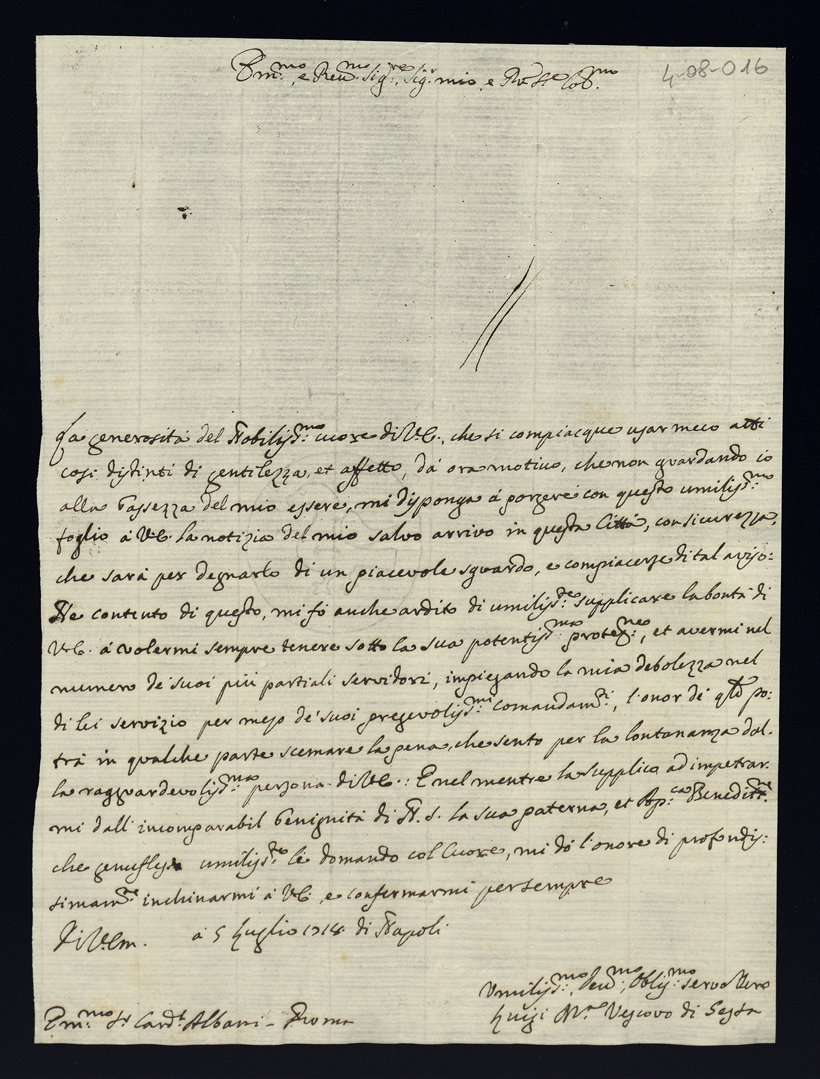 Em.mo, e Rev.mo Sig.re, Sig.r mio, e P.ron Col.mo
4-08-016
La generosità del Nobiliss.mo cuore di V.E., che si compiacque usar meco atti
così distinti di gentilezza, et affetto, dà ora motivo, che non guardando io
alla bassezza del mio essere, mi disponga à porgere con questo umiliss.mo
foglio à V.E. la notizia del mio salvo arrivo in questa Città, con sicurezza,
che sarà per degnarlo di un piacevole sguardo, e compiacerse di tal aviso:
Ne contento di questo, mi fò anche ardito di umiliss.te supplicare la bontà di
V.E. à volermi sempre tenere sotto la sua potentiss.ma protez.ne, et avermi nel
numero de' suoi più partiali servidori, impiegando la mia debolezza nel
di lei servizio per mezo de' suoi pregevoliss.mi comandam.ti, l'onor de' q.li po:
trà in qualche parte scemare la pena, che sento per la lontananza dal:
la ragguardevoliss.ma persona di V.E.: E nel mentre la supplico ad impetrar:
mi dall'incomparabil benignità di N.S. la sua paterna, et Ap.ca Benedit.ne
che genuflesso umiliss.te le domando col Cuore, mi dò l'onore di profondis:
simam.te inchinarmi à V.E., e confermarmi per sempre
Di V.Em. à 5 Luglio 1714 di Napoli
Umiliss.mo, Dev.mo, Oblig.mo servo Vero
Luigi M.a Vescovo di Sessa
Em.mo Sr Card.l Albani - Roma